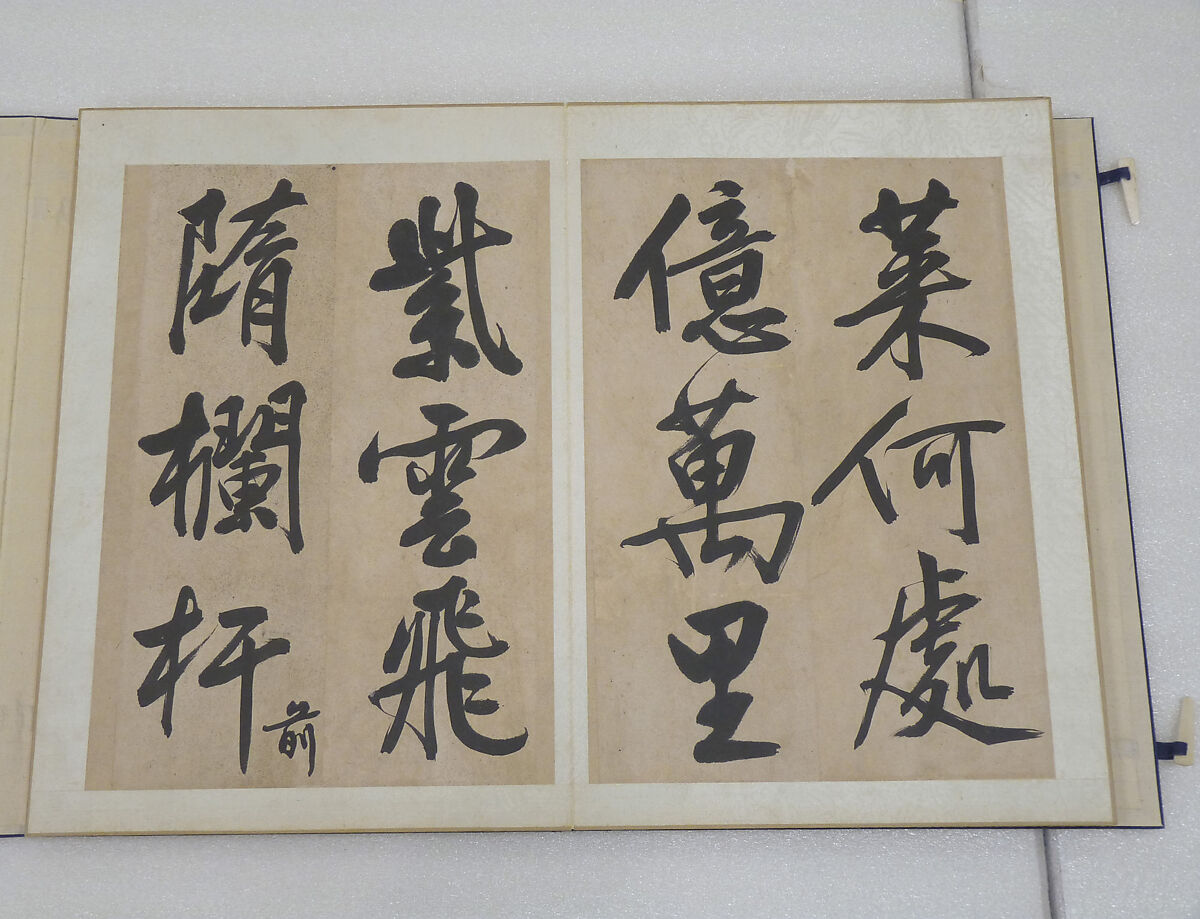 萊何處
億萬里
紫雲飛
隋欄杆前